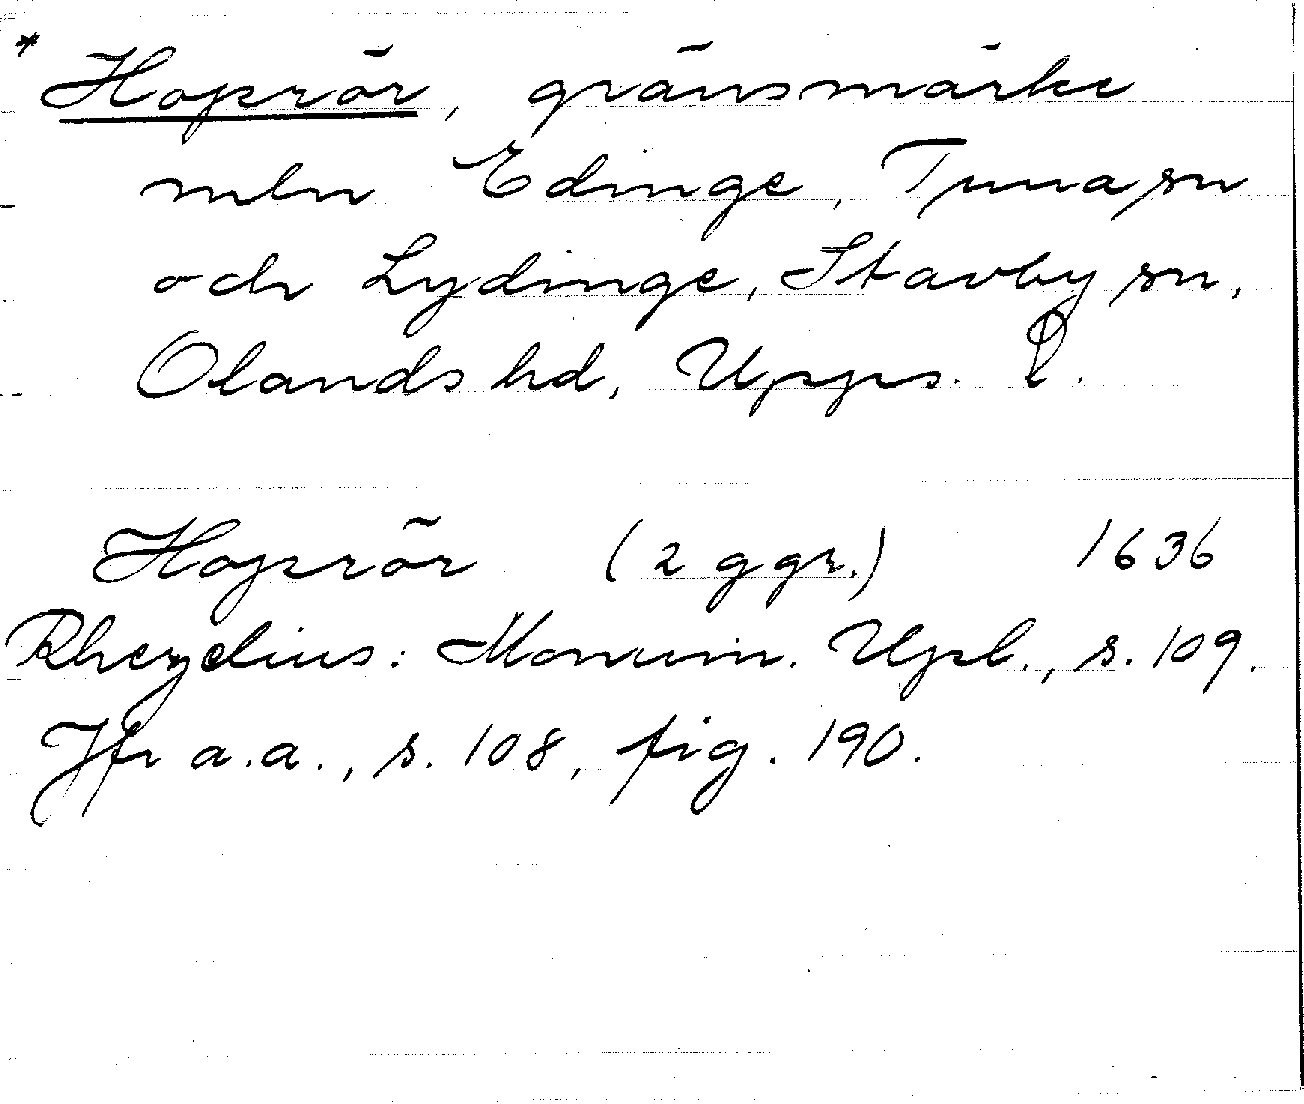 * Hoprör, gränsmärke
mln Edinge, Tuna sn
och Lydinge, Stavby sn,
Olands hd, Upps. l.
Hoprör (2 ggr.) 1636
Rhezelius: Monum. Upl., s. 109.
Jfr a.a., s. 108, fig. 190.